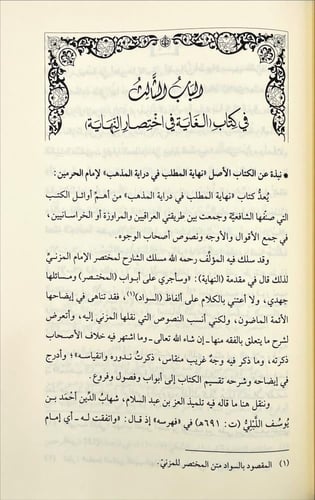 الباب الثالث
في كتاب (الغاية في اختصار النهاية)
• نبذة عن الكتاب الأصل «نهاية المطلب في دراية المذهب» لإمام الحرمين:
يُعدُّ كتاب «نهاية المطلب في دراية المذهب» من أهم أوائل الكتب
التي صنَّفها الشافعيَّة وجمعت بين طريقتي العراقيين والمراوزة أو الخراسانيين،
في جمع الأقوال والأوجه ونصوص أصحاب الوجوه.
وقد سلك فيه المؤلِّف رحمه الله مسلك الشارح لمختصر الإمام المزنيِّ
لذلك قال في مقدمة (النهاية): «وسأجري على أبواب (المختصر) ومسائلها
جهدي، ولا أعتني بالكلام على ألفاظ (السواد)(١)، فقد تناهى في إيضاحها
الأئمة الماضون، ولكني أنسب النصوص التي نقلها المزني إليه، وأتعرض
لشرح ما يتعلق بالفقه منها - إن شاء الله تعالى - وما اشتهر فيه خلاف الأصحاب
ذكرته، وما ذكر فيه وجهٌ غريب منقاس، ذكرتُ ندوره وانقياسه»؛ وأدرج
في إيضاحه وشرحه تقسيم الكتاب إلى أبواب وفصول وفروع.
وننقل هنا ما قاله فيه تلميذ العز بن عبد السلام، شهابُ الدِّين أحمد بن
يوسف اللَّبْليُّ (ت: ٦٩١هـ) في «فهرسه» إذ قال: «واتفقت لـه - أي إمام
(١) المقصود بالسواد متن المختصر للمزنيّ.